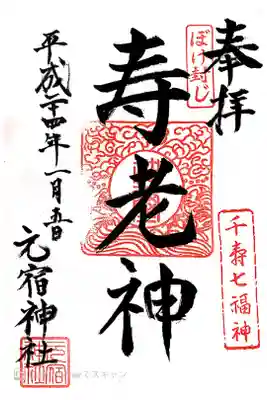 奉拝
ぼけ封じ
千寿七福神
寿老神
平成二十四年一月五日
元宿神社